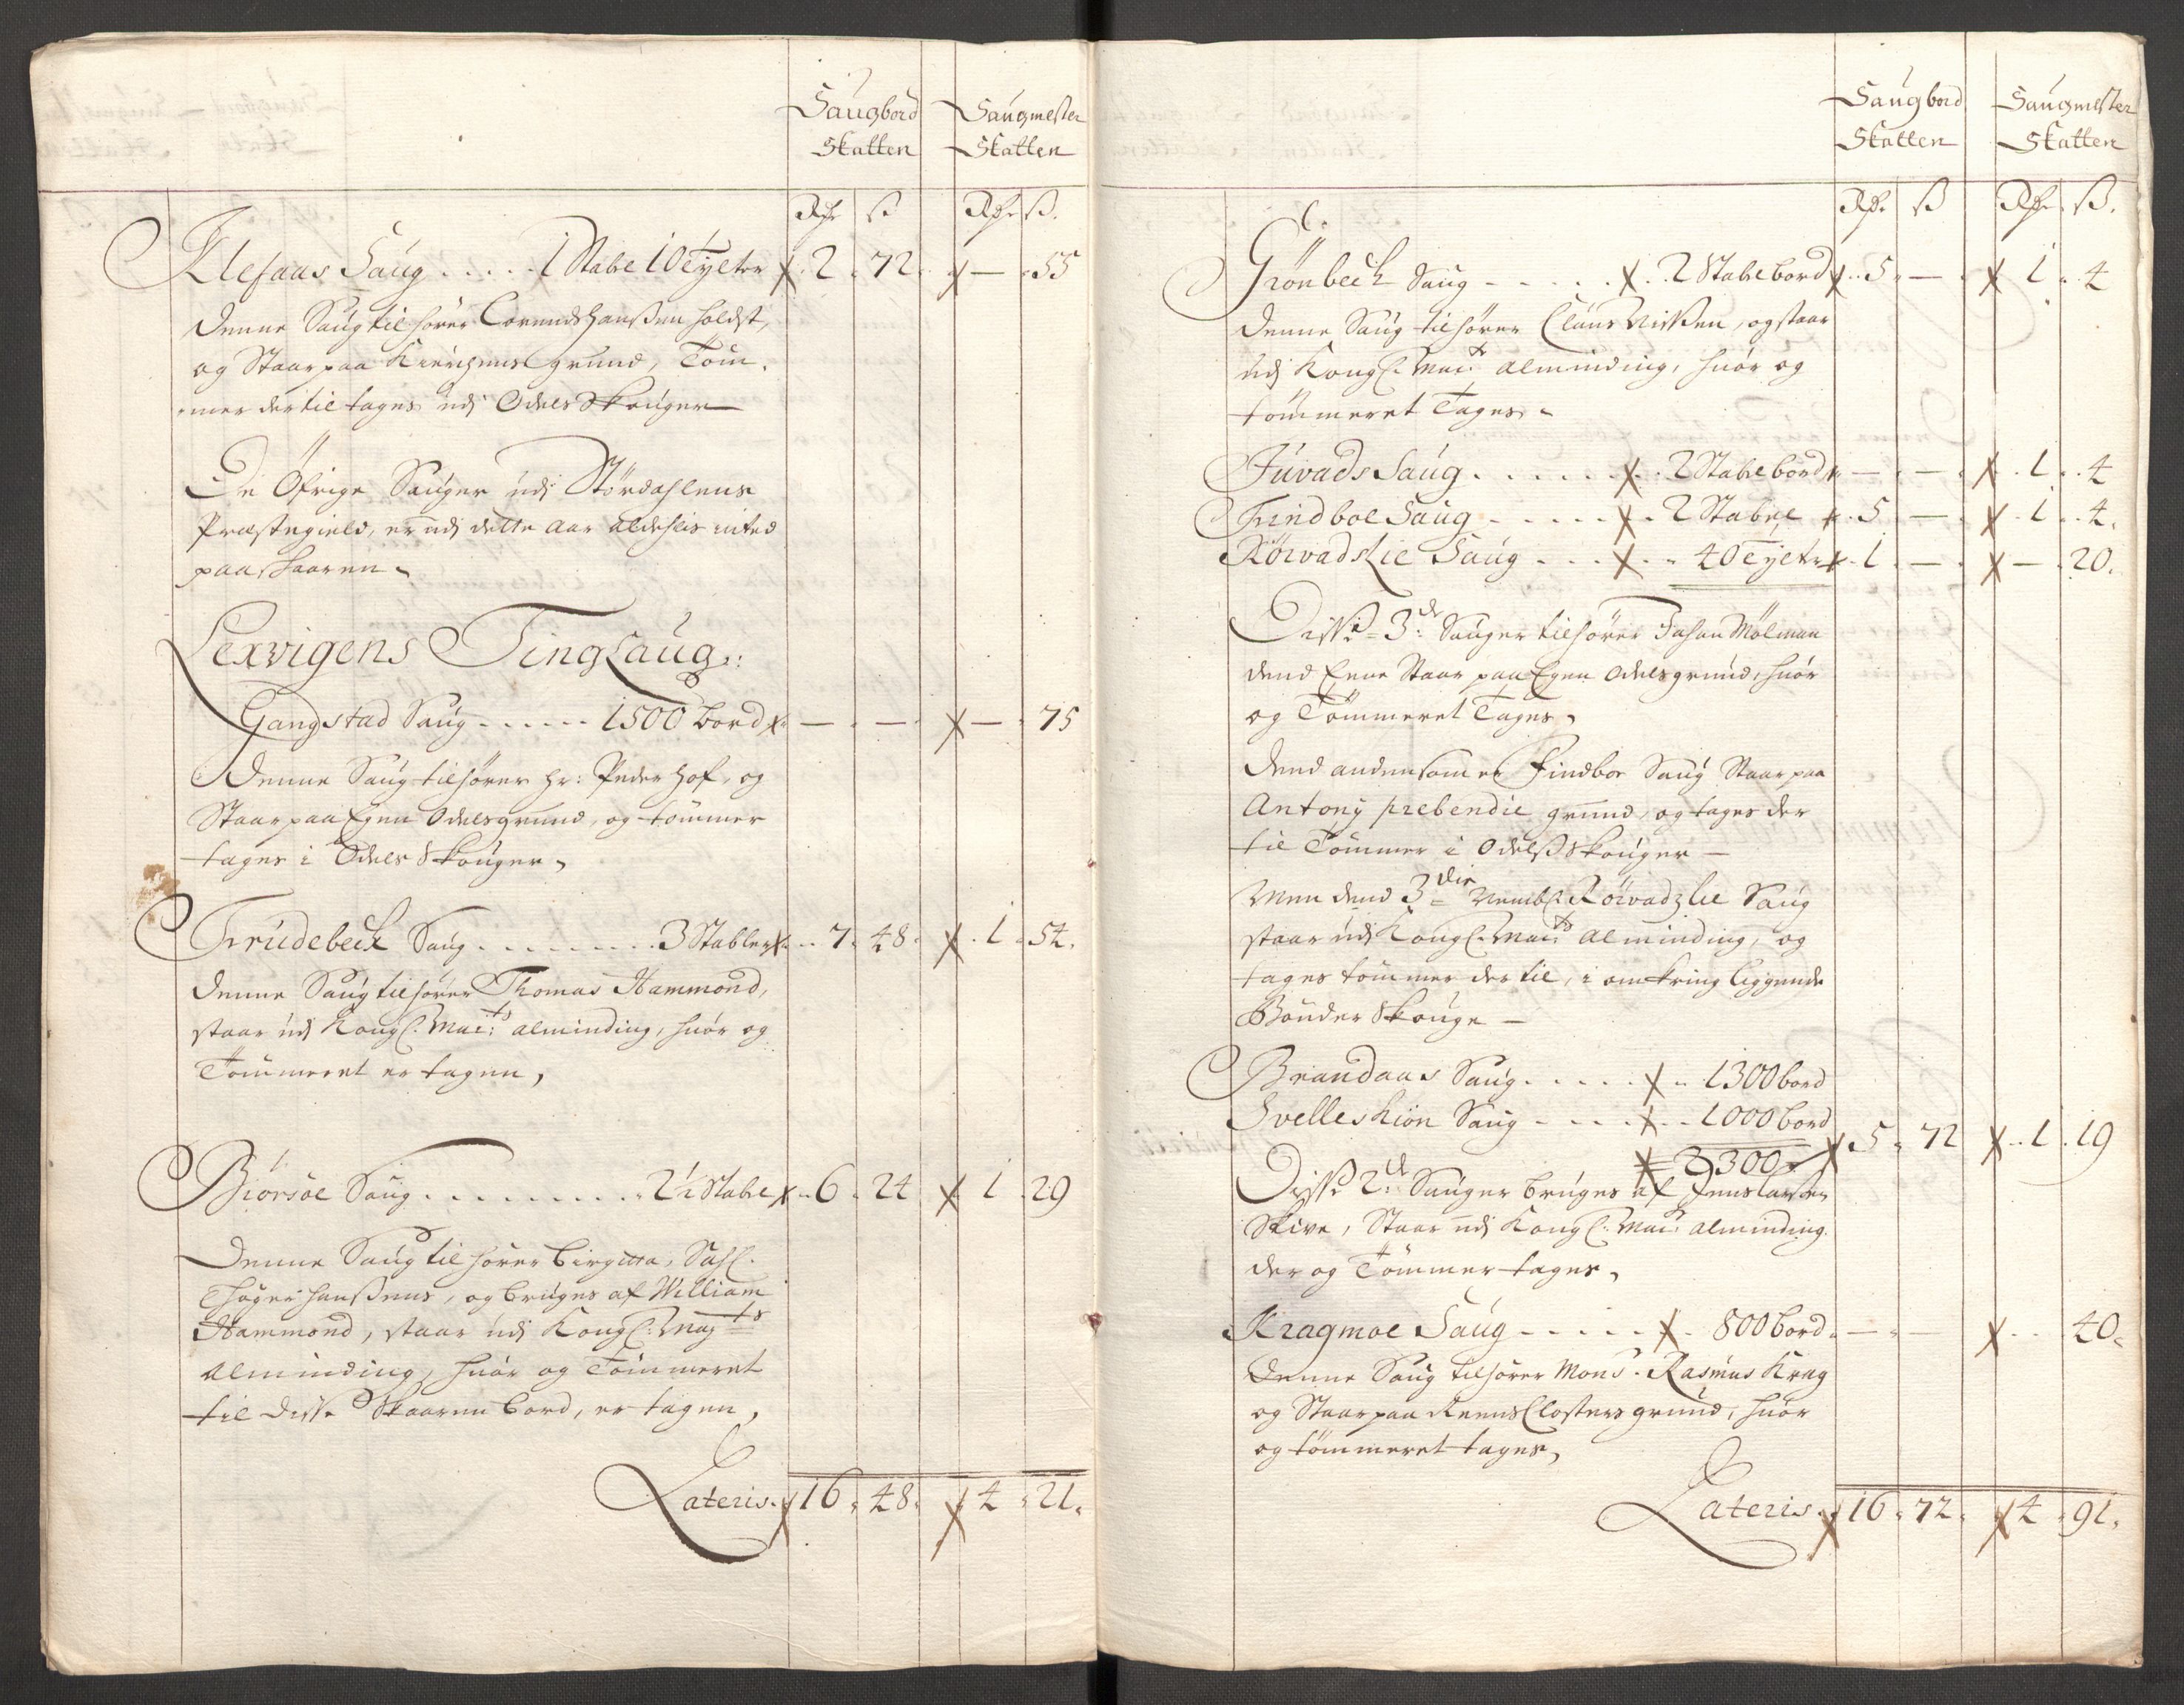 Saugbord Saugmester
Skatten Skatten
Rdr ß Rdr ß.
Klefaas Saug . . . . . 1 Stabe 10 tylter 2 72 — 55
Denne Saug tilhører Lorends Hanßen Holdst,
og Staar paa Kierchens grund, Tøm¬
mer dertil tages udj Odels Skouger —
De Øfrige Sauger udj Størdahlens
Præstegield, er udj dette Aar aldeelis inted
paa Skaaren.
Lexvigens Tinglaug.:
Gangstad Saug . . . . . . 1500 bord — — — 75
Denne Saug tilhører Hr: Peder Hof, og
Staar paa Egen Odelsgrund, og tømmer
tages i Odels Skouger,
Trudebeck Saug . . . . . . . . 3 Stabler 7 48 1 54.
Denne Saug tilhører Thomas Hammond,
staar udj Kongl: Mai:ts alminding, huor og
Tømmeret er tagen,
Biørsøe Saug . . . . . . . . . 2½ Stabe 6 24 1 29
Denne Saug tilhører Birgitta, Sahl.
Thøger Hanßens, og bruges af William
Hammond, staar udj Kongl: May:ts
alminding, huor og Tømmeret
til disse Skaaren bord, er tagen,
Lateris. 16 48. 4 21.
Saugbord Saugmester
Skatten Skatten
Rdr. ß Rdr. ß.
Grønbeck Saug - . . . . . 2 Stabe bord 5 — 1 4
Denne Saug tilhører Claus Nißen, og staar
udj Kongl: Mai:ts alminding, huor og
tømmeret Tages.
Juvads Saug . . . . . . . 2 Stabe bord — — 1 4
Trindboe Saug - . . . . . 2 Stabe 5 — 1 4.
Rørvadslie Saug . . . . . 40 tylter 1 — — 20.
Disse 3de Sauger tilhører Johan Mølman
dend Eene Staar paa Egen Odelsgrund, huor
og Tømmeret Tages,
Dend anden som er Findboe Saug Staar paa
Antonij prebendie grund, og tages der
til Tømmer i Odelß Skouger —
Men dend 3die Nembl: Rørvadzlie Saug
staar udj Kongl: Mai:ts alminding, og
tages tømmer der til, i omkring liggende
Bønder Skouge —
Brandaas Saug . . . . . 1300 bord
Svelleskiøn Saug - . . . 1000 bord
2300 5 72 1 19
Disse 2de Sauger bruges af Jens Larsen
Skive, Staar udj Kongl: Mai:ts alminding
der og Tømmer tages,
Kragmoe Saug - . . . . . 800 bord — — 40.
Denne Saug tilhører Mons. Rasmus Krag
og Staar paa Reens Closters grund, huor
og tømmeret tages,
Lateris. 16 72. 4 91.